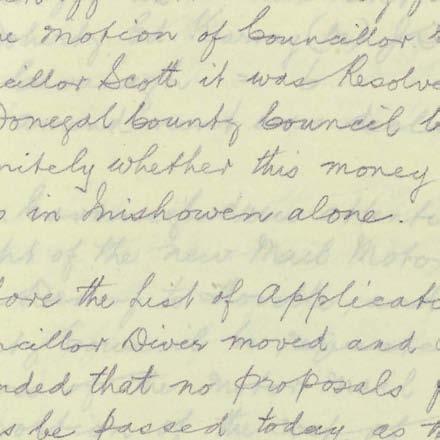 motion of Councillor
cillor Scott it was Resolve
Donegal County Council b
nitely whether this money
s in Inishowen alone.
fore the List of Applicat
ncillor Diver moved and
nded that no proposals
s be passed today as